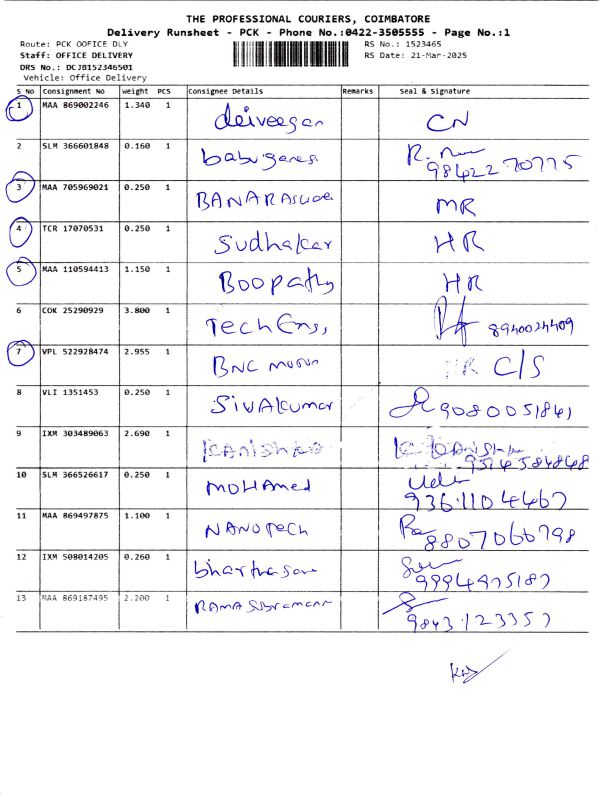 THE PROFESSIONAL COURIERS, COIMBATORE
Delivery Runsheet - PCK - Phone No.:0422-3505555 - Page No.:1
Route: PCK OOFICE DLY
RS No.: 1523465
Staff: OFFICE DELIVERY
RS Date: 21-Mar-2025
DRS No.: DCJB152346501
Vehicle: Office Delivery
S No Consignment No Weight PCS Consignee Details Remarks Seal & Signature
1 MAA 869002246 1.340 1 deiveegan CN
2 SLM 366601848 0.160 1 babuganesh R.
9842270775
3 MAA 705969021 0.250 1 MR
4 TCR 17070531 0.250 1 Sudhakar HR
5 MAA 110594413 1.150 1 Boopathy HR
6 COK 25290929 3.800 1 Tech Engs, 8940024409
7 VPL 522928474 2.955 1 BNC HR C/S
8 VLI 1351453 0.250 1 SIVAkumar 9080051841
9 IXM 303489063 2.690 1 KANISHKA
9514584848
10 SLM 366526617 0.250 1 MOHAmed
9361104467
11 MAA 869497875 1.100 1 NANOTECH
8807066798
12 IXM 508014205 0.260 1
9994975187
13 MAA 869187495 2.200 1 RAMA
9843123357